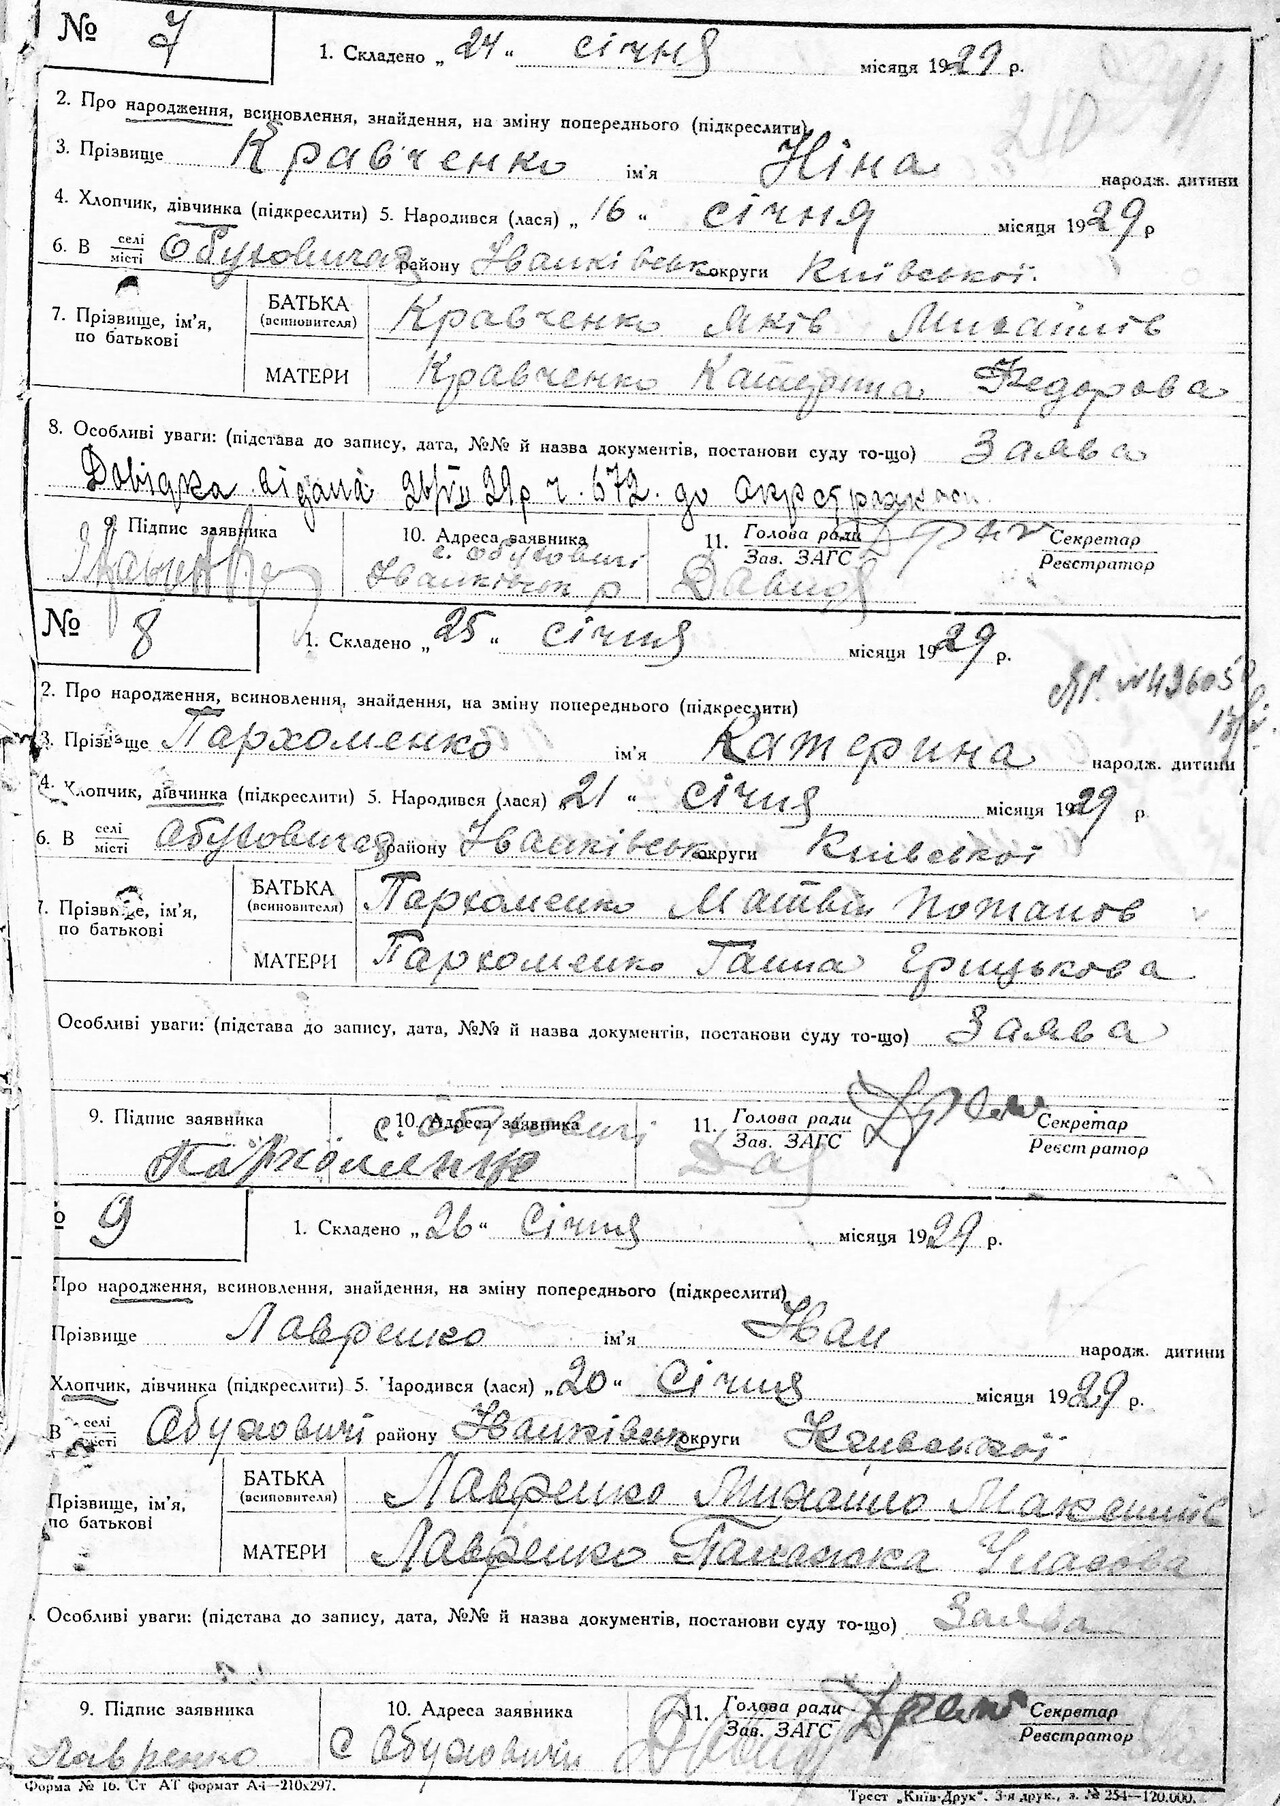 № 7
1. Складено „24" січня місяця 1929 р.
2. Про народження, всиновлення, знайдення, на зміну попереднього (підкреслити)
3. Прізвище Кравченко ім'я Ніна народж. дитини
4. Хлопчик, дівчинка (підкреслити) 5. Народився (лася) „16" січня місяця 1929 р
6. В селі місті Обуховичах району Іванківськ округи Київської.
7. Прізвище, ім'я, по батькові
БАТЬКА (всиновителя) Кравченко Яків Михайлів
МАТЕРИ Кравченко Катерина Федорова
8. Особливі уваги: (підстава до запису, дата, №№ й назва документів, постанови суду то-що) Заява
Довідка видана 29р ч. 672. до
9. Підпис заявника
10. Адреса заявника с. Обуховичі
Іванківськ р
11. Голова ради
Зав. ЗАГС
Секретар
Реєстратор
№ 8
1. Складено „25" січня місяця 1929 р.
2. Про народження, всиновлення, знайдення, на зміну попереднього (підкреслити)
3. Прізвище Пархоменко ім'я Катерина народж. дитини
4. Хлопчик, дівчинка (підкреслити) 5. Народився (лася) „21" січня місяця 1929 р
6. В селі місті Обуховичах району Іванківськ округи Київської
7. Прізвище, ім'я, по батькові
БАТЬКА (всиновителя) Пархоменко Матвій Потапов
МАТЕРИ Пархоменко Ганна Грицькова
Особливі уваги: (підстава до запису, дата, №№ й назва документів, постанови суду то-що) Заява
9. Підпис заявника
Пархоменко
10. Адреса заявника
с. Обуховичі
11. Голова ради
Зав. ЗАГС
Секретар
Реєстратор
9
1. Складено „26" Січня місяця 1929 р.
Про народження, всиновлення, знайдення, на зміну попереднього (підкреслити)
Прізвище Лавренко ім'я Іван народж. дитини
Хлопчик, дівчинка (підкреслити) 5. Народився (лася) „20" Січня місяця 1929 р.
В селі місті Обуховичі району Іванківськ округи Київської
Прізвище, ім'я, по батькові
БАТЬКА (всиновителя) Лавренко Михайло Максимів
МАТЕРИ Лавренко Панажка Уласова
Особливі уваги: (підстава до запису, дата, №№ й назва документів, постанови суду то-що) Заява
9. Підпис заявника
Лавренко
10. Адреса заявника
с Обуховичи
11. Голова ради
Зав. ЗАГС
Секретар
Реєстратор
Форма № 16. Ст АТ формат А4—210х297.
Трест „Київ-Друк". 3-я друк., з. № 254—120.000.